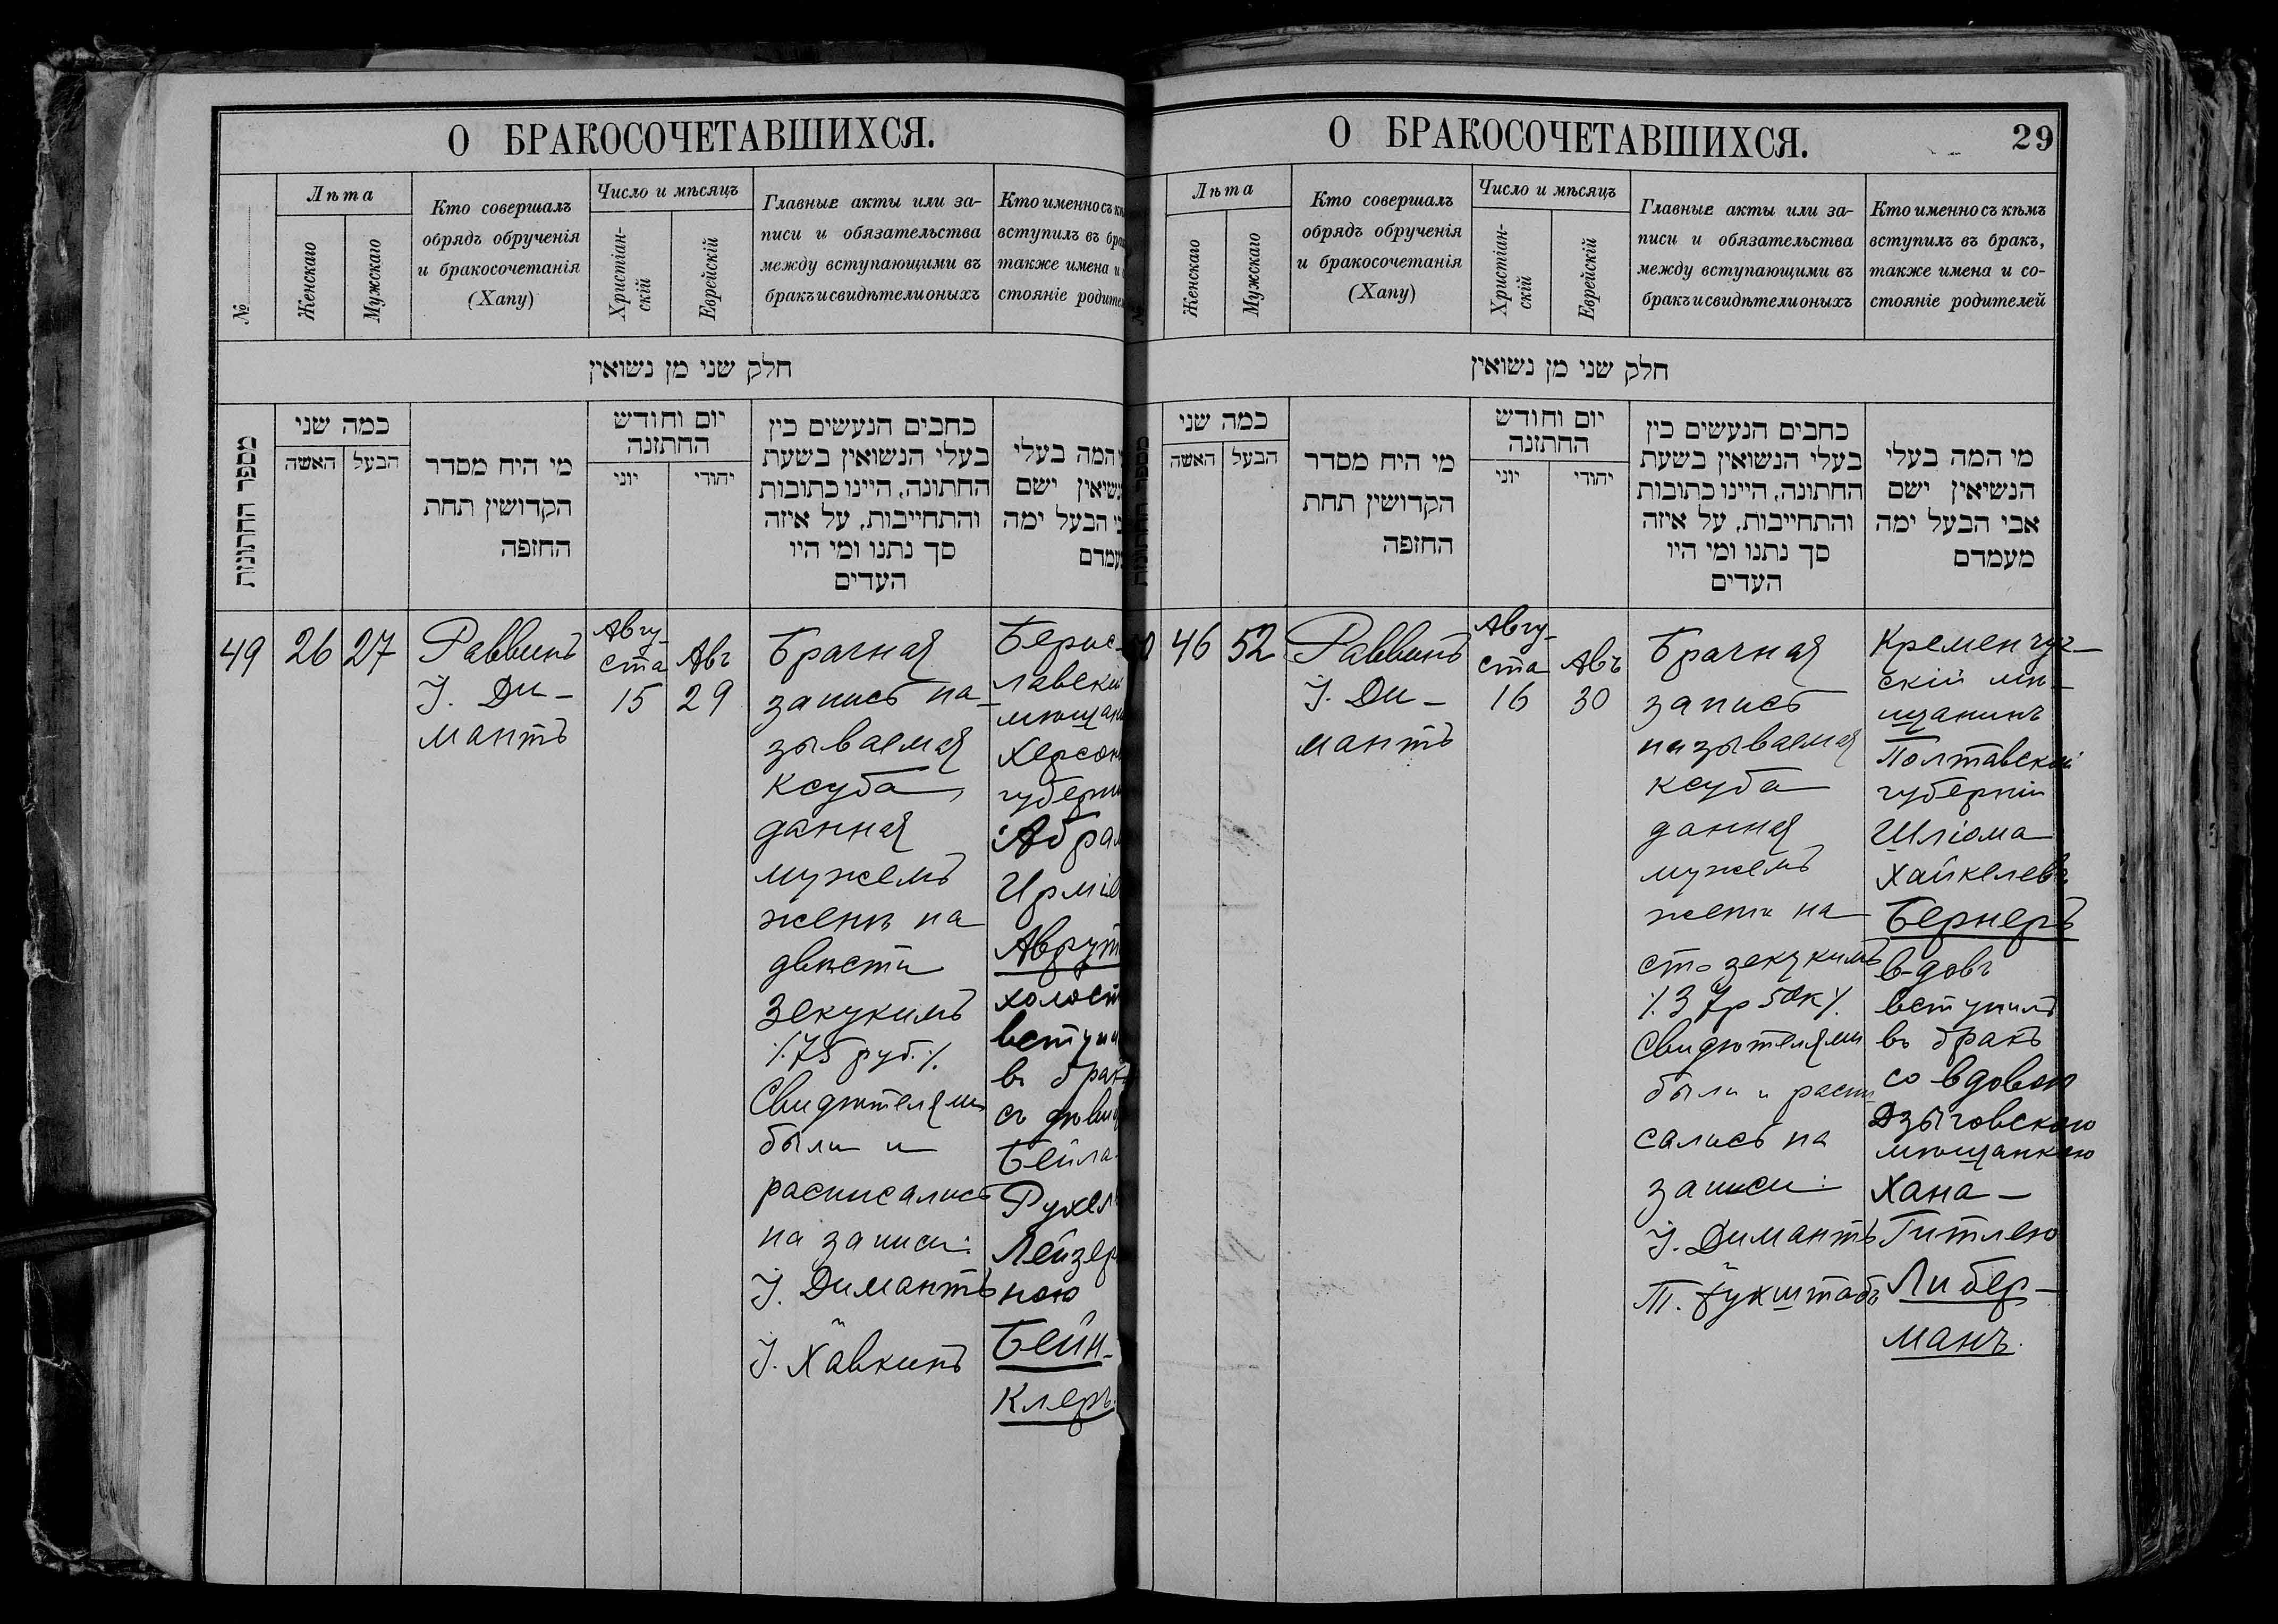 О БРАКОСОЧЕТАВШИХСЯ.
№
Лѣта
Женскаго
Мужскаго
Кто совершалъ
обрядъ обрученія
и бракосочетанія
(Хапу)
Число и мѣсяцъ
Христіан-
скій
Еврейскій
Главные акты или за-
писи и обязательства
между вступающими въ
бракъ и свидѣтели оныхъ
Кто именно съ
вступилъ въ
также имена и
стояніе
חלק שני מן נשואין
מספר החתונות
כמה שני
האשה
הבעל
מי היח מסדר
הקדושין תחת
החופה
יום וחודש
החתזנה
יוני
יהודי
כחבים הנעשים כין
בעלי הנשואין בשעת
החתונה, היינו כתובות
והתחייבות, על איזה
סך נתנו ומי היו
העדים
המה בעלי
ישם
הבעל ימה
49
26
27
Раввинъ
І. Ди-
мантъ
Авгу-
ста
15
Авъ
29
Брачная
запись на-
зываемая
ксуба,
данная
мужемъ
женѣ на
двѣсти
зекукимъ
/.75 руб./.
Свидѣтелями
были и
расписались
на записи:
І. Димантъ
І. Хавкинъ
Берис-
лавскій
Бейла-
Лейзер
ною
Бейн-
клеръ.
О БРАКОСОЧЕТАВШИХСЯ.
29
Лѣта
Женскаго
Мужскаго
Кто совершалъ
обрядъ обрученія
и бракосочетанія
(Хапу)
Число и мѣсяцъ
Христіан-
скій
Еврейскій
Главные акты или за-
писи и обязательства
между вступающими въ
бракъ и свидѣтели оныхъ
Кто именно съ кѣмъ
вступилъ въ бракъ,
также имена и со-
стояніе родителей
חלק שני מן נשואין
כמה שני
האשה
הבעל
מי היח מסדר
הקדושין תחת
החופה
יום וחודש
החתזנה
יוני
יהודי
כחבים הנעשים כין
בעלי הנשואין בשעת
החתונה, היינו כתובות
והתחייבות, על איזה
סך נתנו ומי היו
העדים
מי המה בעלי
הנשיאין ישם
אבי הבעל ימה
מעמדם
46
52
Раввинъ
І. Ди-
мантъ
Авгу-
ста
16
Авъ
30
Брачная
запись
называемая
ксуба
данная
мужемъ
женѣ на
сто зекукимъ
/.37р 50к/.
Свидѣтелями
были и распи
сались на
записи:
І. Димантъ
Кременчуг-
скій мѣ-
щанинъ
Полтавской
губерніи
Шліома
Хайкелевъ
Бернеръ
вдовъ
вступилъ
въ бракъ
со вдовою
мѣщанкою
Хана-
Гитлею
Либер-
манъ.